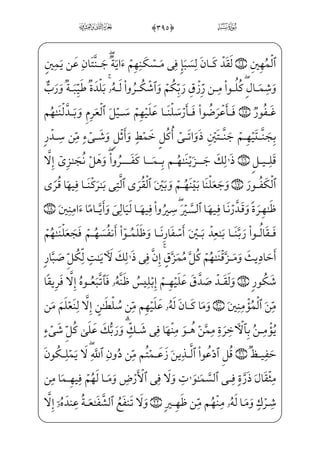 الجزء الثاني والعشرون ﴿٣٩٥﴾ سورة سبأ
ٱلْمُهِينِ ١٤ لَقَدْ كَانَ لِسَبَإٍ فِى مَسْكَنِهِمْ ءَايَةٌ ۖ جَنَّتَانِ عَن يَمِينٍ
وَشِمَالٍ ۖ كُلُوا۟ مِن رِّزْقِ رَبِّكُمْ وَٱشْكُرُوا۟ لَهُۥ ۚ بَلْدَةٌ طَيِّبَةٌ وَرَبٌّ
غَفُورٌ ١٥ فَأَعْرَضُوا۟ فَأَرْسَلْنَا عَلَيْهِمْ سَيْلَ ٱلْعَرِمِ وَبَدَّلْنَـٰهُم
بِجَنَّتَيْهِمْ جَنَّتَيْنِ ذَوَاتَىْ أُكُلٍ خَمْطٍ وَأَثْلٍ وَشَىْءٍ مِّن سِدْرٍ
قَلِيلٍ ١٦ ذَٰلِكَ جَزَيْنَـٰهُم بِمَا كَفَرُوا۟ ۖ وَهَلْ نُجَـٰزِىٓ إِلَّا
ٱلْكَفُورَ ١٧ وَجَعَلْنَا بَيْنَهُمْ وَبَيْنَ ٱلْقُرَى ٱلَّتِى بَـٰرَكْنَا فِيهَا قُرًى
ظَـٰهِرَةً وَقَدَّرْنَا فِيهَا ٱلسَّيْرَ ۖ سِيرُوا۟ فِيهَا لَيَالِىَ وَأَيَّامًا ءَامِنِينَ ١٨
فَقَالُوا۟ رَبَّنَا بَـٰعِدْ بَيْنَ أَسْفَارِنَا وَظَلَمُوٓا۟ أَنفُسَهُمْ فَجَعَلْنَـٰهُمْ
أَحَادِيثَ وَمَزَّقْنَـٰهُمْ كُلَّ مُمَزَّقٍ ۚ إِنَّ فِى ذَٰلِكَ لَـَٔايَـٰتٍ لِّكُلِّ صَبَّارٍ
شَكُورٍ ١٩ وَلَقَدْ صَدَّقَ عَلَيْهِمْ إِبْلِيسُ ظَنَّهُۥ فَٱتَّبَعُوهُ إِلَّا فَرِيقًا
مِّنَ ٱلْمُؤْمِنِينَ ٢٠ وَمَا كَانَ لَهُۥ عَلَيْهِم مِّن سُلْطَـٰنٍ إِلَّا لِنَعْلَمَ مَن
يُؤْمِنُ بِٱلْـَٔاخِرَةِ مِمَّنْ هُوَ مِنْهَا فِى شَكٍّ ۗ وَرَبُّكَ عَلَىٰ كُلِّ شَىْءٍ
حَفِيظٌ ٢١ قُلِ ٱدْعُوا۟ ٱلَّذِينَ زَعَمْتُم مِّن دُونِ ٱللَّهِ ۖ لَا يَمْلِكُونَ
مِثْقَالَ ذَرَّةٍ فِى ٱلسَّمَـٰوَٰتِ وَلَا فِى ٱلْأَرْضِ وَمَا لَهُمْ فِيهِمَا مِن
شِرْكٍ وَمَا لَهُۥ مِنْهُم مِّن ظَهِيرٍ ٢٢ وَلَا تَنفَعُ ٱلشَّفَـٰعَةُ عِندَهُۥٓ إِلَّا